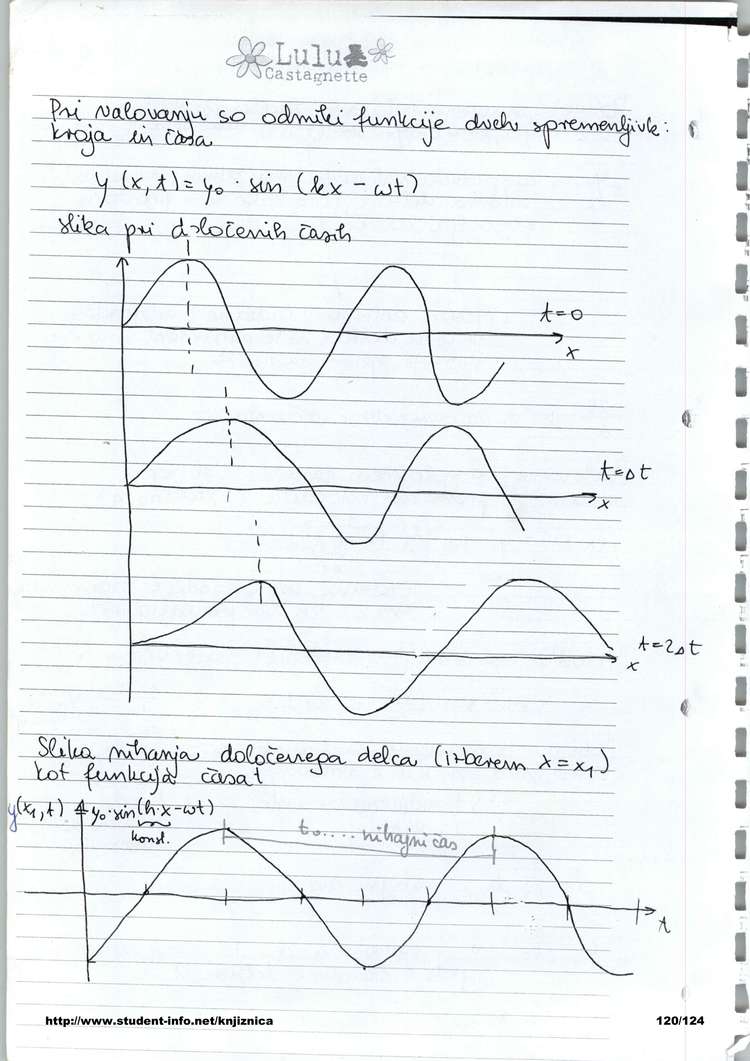 Lulu
Castagnette
Pri valovanju so odmiki funkcije dveh spremenljivk:
kraja in časa
y (x, t) = y₀ · sin (kx - ωt)
slika pri določenih časih
t=0
x
t=Δt
x
t=2Δt
x
Slika nihanja določenega delca (izberem x = x₁)
kot funkcija časa t
y(x₁, t) = y₀·sin(k·x-ωt)
konst.
t₀.... nihajni čas
t
http://www.student-info.net/knjiznica
120/124